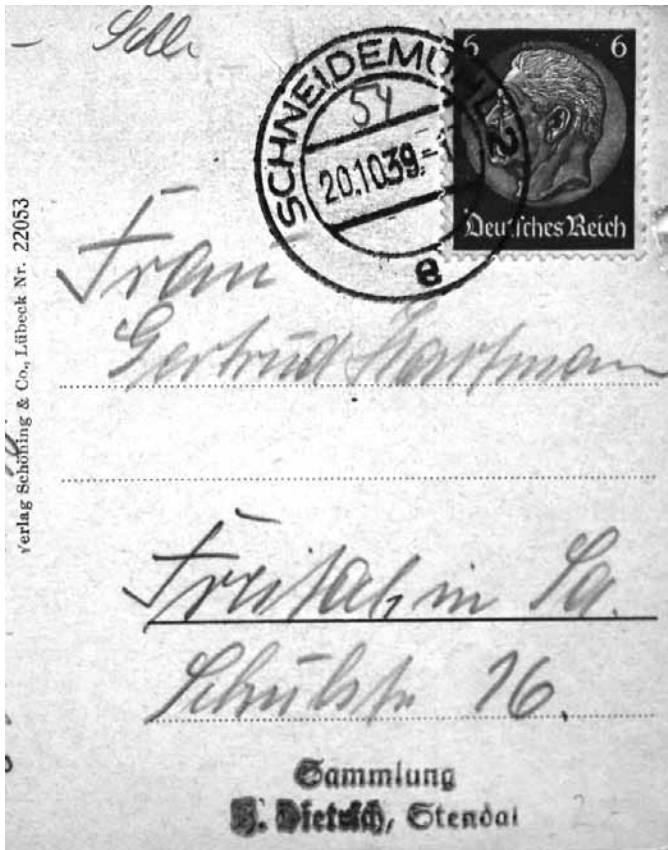 6 6
SCHNEIDEMÜHL 2
54
20.10.39.-1
e
Deutsches Reich
Verlag Schöning & Co., Lübeck Nr. 22053
Frau
Gertrud Hartmann
Freital in Sa.
Schulstr. 16.
Sammlung
H. Dietrich, Stendal